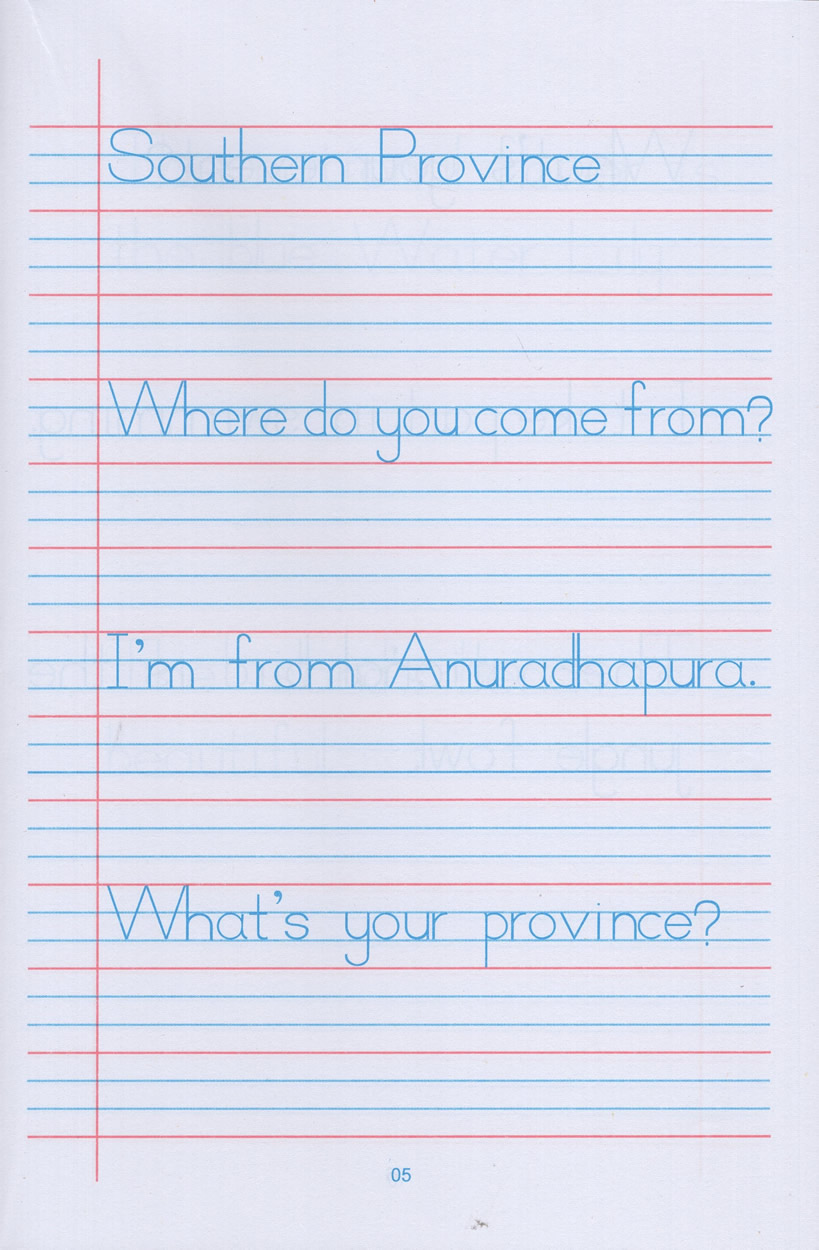 Southern Province
Where do you come from?
I'm from Anuradhapura.
What's your province?
05